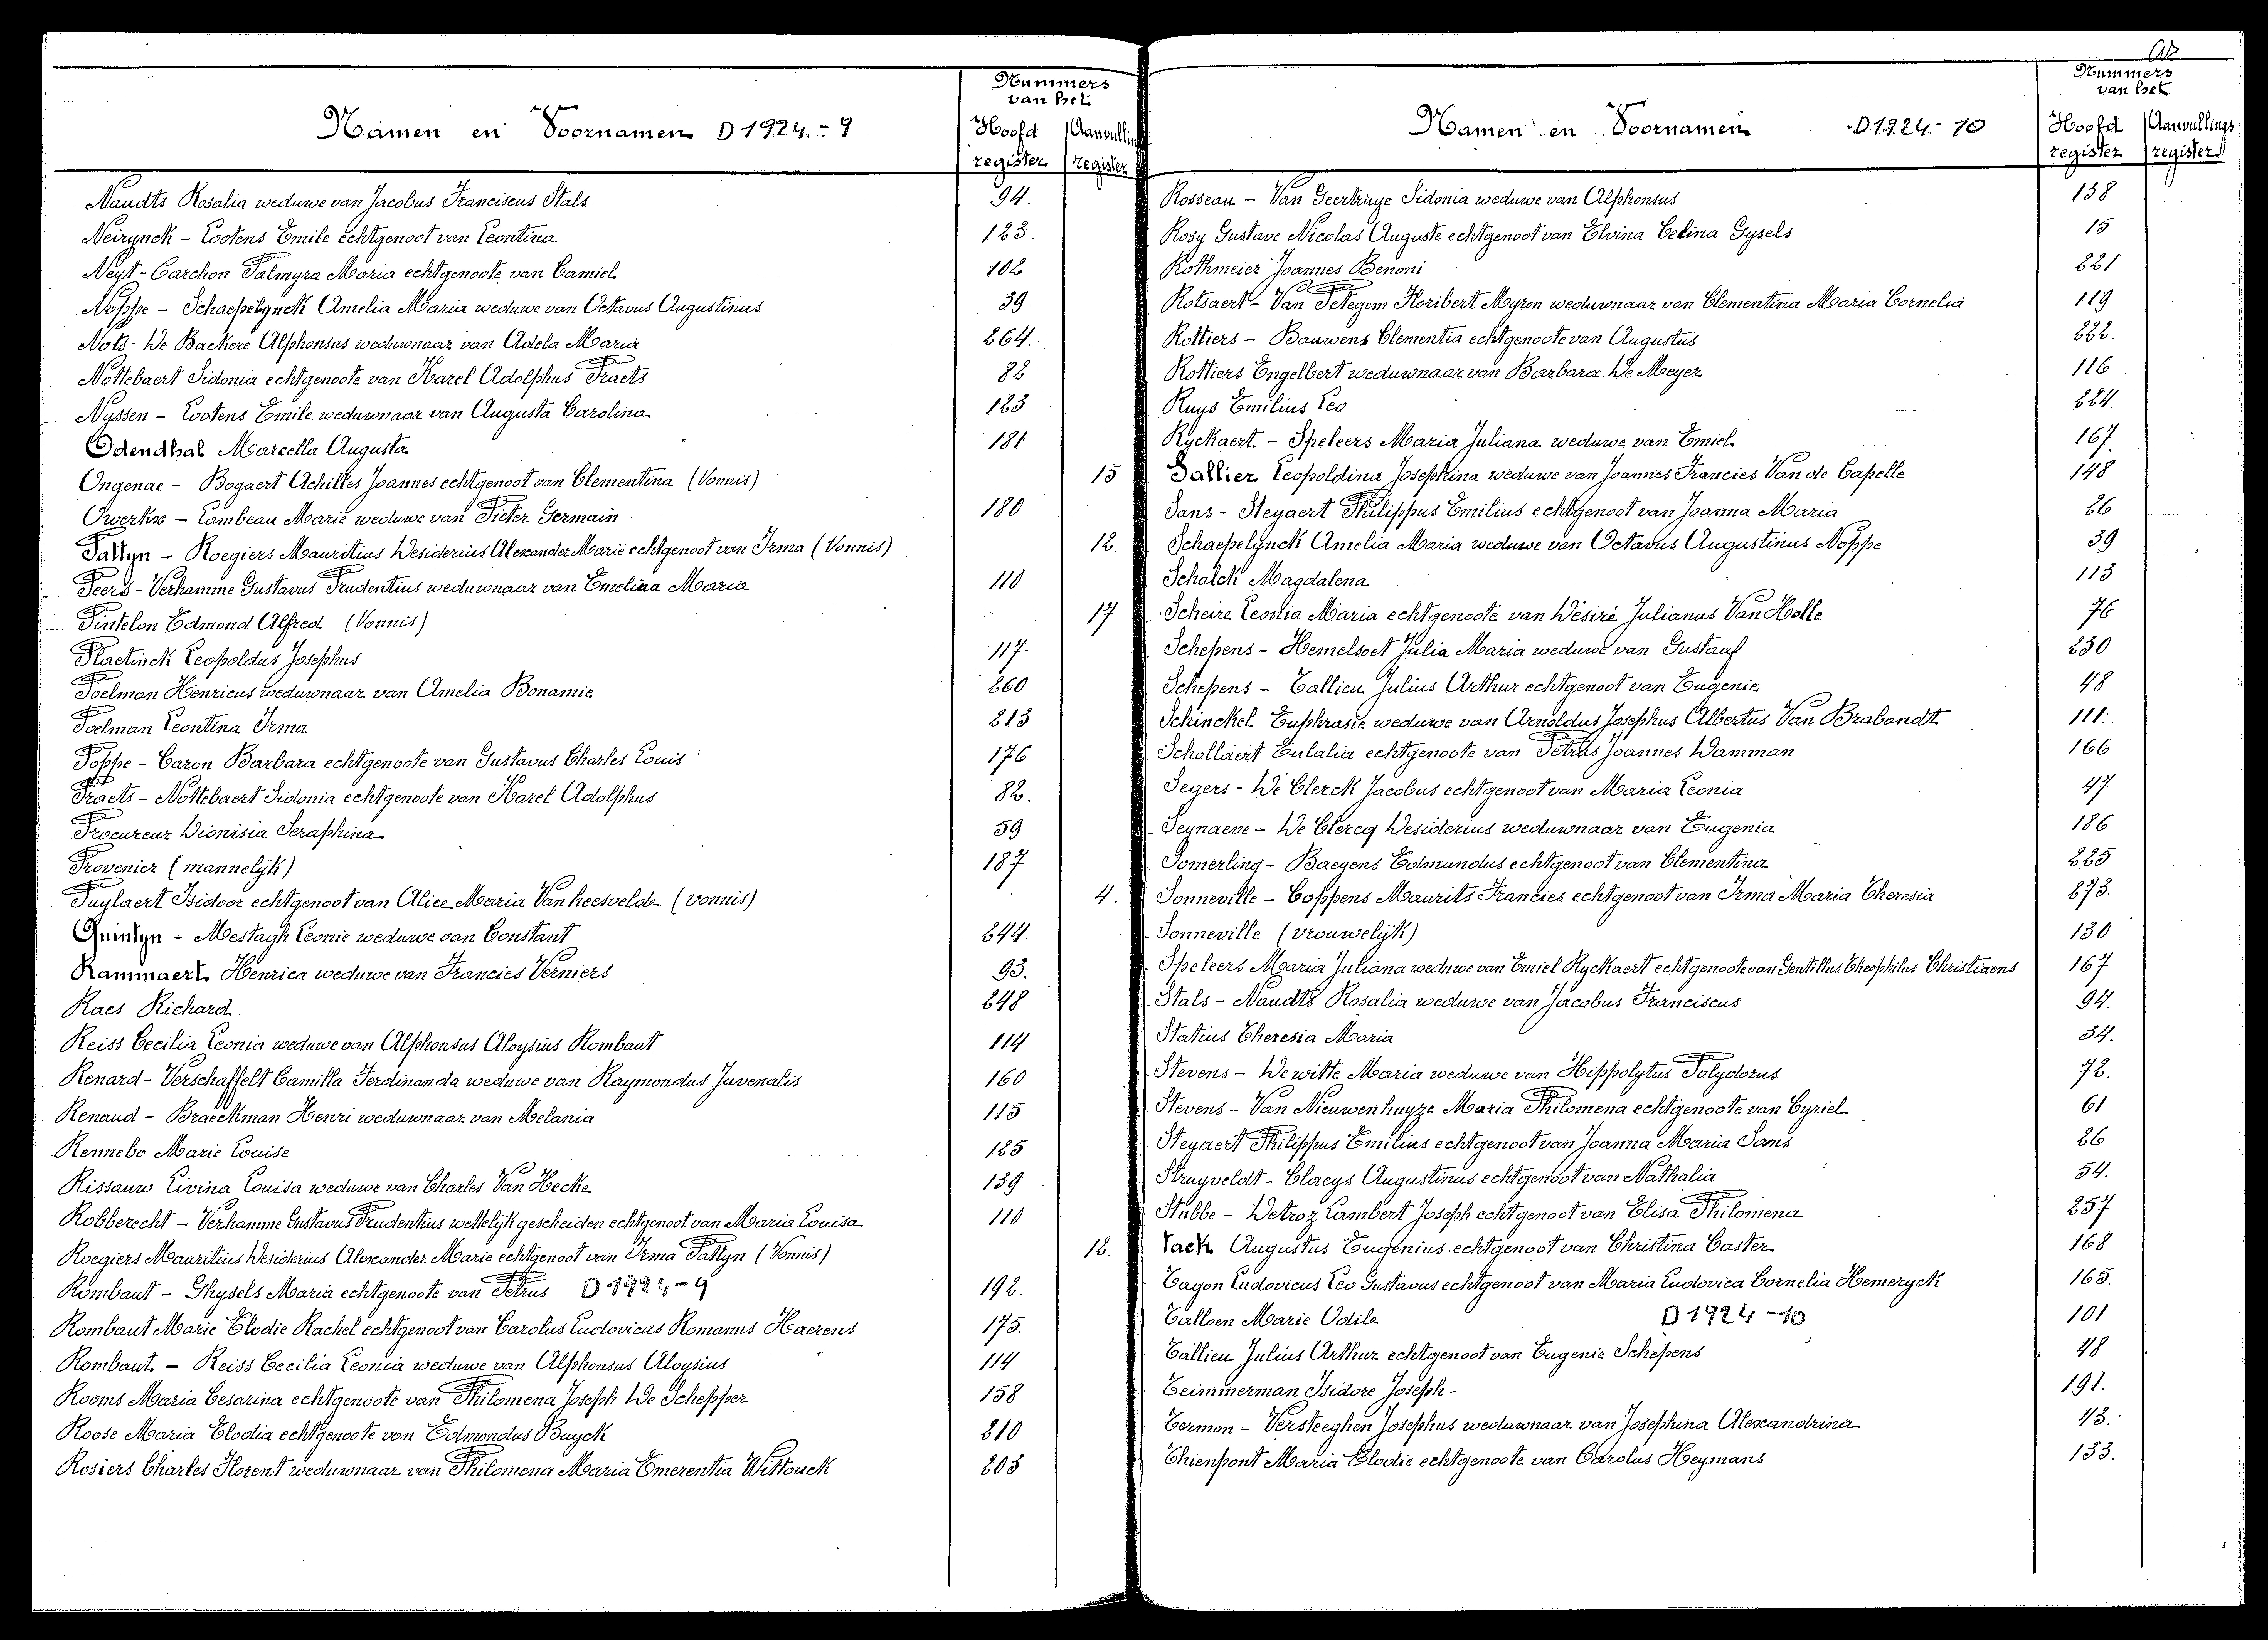 Nummers
van het
Namen en Voornamen D 1924. - 9
Hoofd Aanvullings
register register
Naudts Rosalia weduwe van Jacobus Franciscus Stals 94.
Neirynck - Lootens Emile echtgenoot van Leontina 123.
Neyt - Carchon Palmyra Maria echtgenoote van Camiel 102
Noppe - Schaepelynck Amelia Maria weduwe van Octavus Augustinus 39
Nots - De Backere Alphonsus weduwnaar van Adela Maria 264.
Nottebaert Sidonia echtgenoote van Karel Adolphus Praets 82
Nyssen - Lootens Emile weduwnaar van Augusta Carolina 123
Odendhal Marcella Augusta 181
Ongenae - Bogaert Achilles Joannes echtgenoot van Clementina (Vonnis) 15
Owerkx - Lambeau Marie weduwe van Pieter Germain 180
Pattyn - Roegiers Mauritius Desiderius Alexander Marie echtgenoot van Irma (Vonnis) 12.
Peers - Verhamme Gustavus Prudentius weduwnaar van Emelina Maria 110
Pintelon Edmond Alfred (Vonnis) 17
Plaetinck Leopoldus Josephus 117
Poelman Henricus weduwnaar van Amelia Bonamie 260
Poelman Leontina Irma 213
Poppe - Caron Barbara echtgenoote van Gustavus Charles Louis 176
Praets - Nottebaert Sidonia echtgenoote van Karel Adolphus 82.
Procureur Dionisia Seraphina 59
Provenier (mannelijk) 187
Puylaert Isidoor echtgenoot van Alice Maria Vanheesvelde (vonnis) 4.
Quintyn - Mestagh Leonie weduwe van Constant 244.
Rammaert Henrica weduwe van Francies Verniers 93.
Raes Richard. 248
Reiss Cecilia Leonia weduwe van Alphonsus Aloysius Rombaut 114
Renard - Verschaffelt Camilla Ferdinanda weduwe van Raymondus Juvenalis 160
Renaud - Braeckman Henri weduwnaar van Melania 115
Rennebo Marie Louise 125
Rissauw Livina Louisa weduwe van Charles Van Hecke 139
Robberecht - Verhamme Gustavus Prudentius wettelijk gescheiden echtgenoot van Maria Louisa 110
Roegiers Mauritius Desiderius Alexander Marie echtgenoot van Irma Pattyn (Vonnis) 12.
Rombaut - Ghysels Maria echtgenoote van Petrus D 1924 - 9 192.
Rombaut Marie Elodie Rachel echtgenoot van Carolus Ludovicus Romanus Haerens 175.
Rombaut - Reiss Cecilia Leonia weduwe van Alphonsus Aloysius 114
Rooms Maria Cesarina echtgenoote van Philomena Joseph De Schepper 158
Roose Maria Elodia echtgenoote van Edmondus Buyck 210
Rosiers Charles Florent weduwnaar van Philomena Maria Emerentia Wittouck 203
Nummers
van het
Namen en Voornamen D.1924.- 10
Hoofd Aanvullings
register register
Rosseau - Van Geertruye Sidonia weduwe van Alphonsus 138
Rosy Gustave Nicolas Auguste echtgenoot van Elvina Celina Gysels 15
Rothmeier Joannes Benoni 221
Rotsaert - Van Petegem Floribert Myron weduwnaar van Clementina Maria Cornelia 119
Rottiers - Bauwens Clementia echtgenoote van Augustus 222.
Rottiers Engelbert weduwnaar van Barbara De Meyer 116
Ruys Emilius Leo 224.
Ryckaert - Speleers Maria Juliana weduwe van Emiel 167
Sallier Leopoldina Josephina weduwe van Joannes Francies Van de Capelle 148
Sans - Steyaert Philippus Emilius echtgenoot van Joanna Maria 26
Schaepelynck Amelia Maria weduwe van Octavus Augustinus Noppe 39
Schalck Magdalena 113
Scheire Leonia Maria echtgenoote van Désiré Julianus Van Holle 76
Schepens - Hemelsoet Julia Maria weduwe van Gustaaf 230
Schepens - Tallieu Julius Arthur echtgenoot van Eugenie 48
Schinckel Euphrasie weduwe van Arnoldus Josephus Albertus Van Brabandt 111.
Schollaert Eulalia echtgenoote van Petrus Joannes Damman 166
Segers - De Clerck Jacobus echtgenoot van Maria Leonia 47
Seynaeve - De Clercq Desiderius weduwnaar van Eugenia 186
Somerling - Baeyens Edmundus echtgenoot van Clementina 225
Sonneville - Coppens Maurits Francies echtgenoot van Irma Maria Theresia 273.
Sonneville (vrouwelijk) 130
Speleers Maria Juliana weduwe van Emiel Ryckaert echtgenoote van Gentillus Theophilus Christiaens 167
Stals - Naudts Rosalia weduwe van Jacobus Franciscus 94.
Statius Theresia Maria 34.
Stevens - De witte Maria weduwe van Hippolytus Polydorus 72.
Stevens - Van Nieuwenhuyze Maria Philomena echtgenoote van Cyriel 61
Steyaert Philippus Emilius echtgenoot van Joanna Maria Sans 26
Struyveldt - Claeys Augustinus echtgenoot van Nathalia 54.
Stubbe - Detroz Lambert Joseph echtgenoot van Elisa Philomena 257
Tack Augustus Eugenius echtgenoot van Christina Caster 168
Tagon Ludovicus Leo Gustavus echtgenoot van Maria Ludovica Cornelia Hemeryck 165.
Talloen Marie Odile D 1924 - 10 101
Tallieu Julius Arthur echtgenoot van Eugenie Schepens 48
Teimmerman Isidore Joseph - 191.
Termon - Versteeghen Josephus weduwnaar van Josephina Alexandrina 43.
Thienpont Maria Elodie echtgenoote van Carolus Heymans 133.